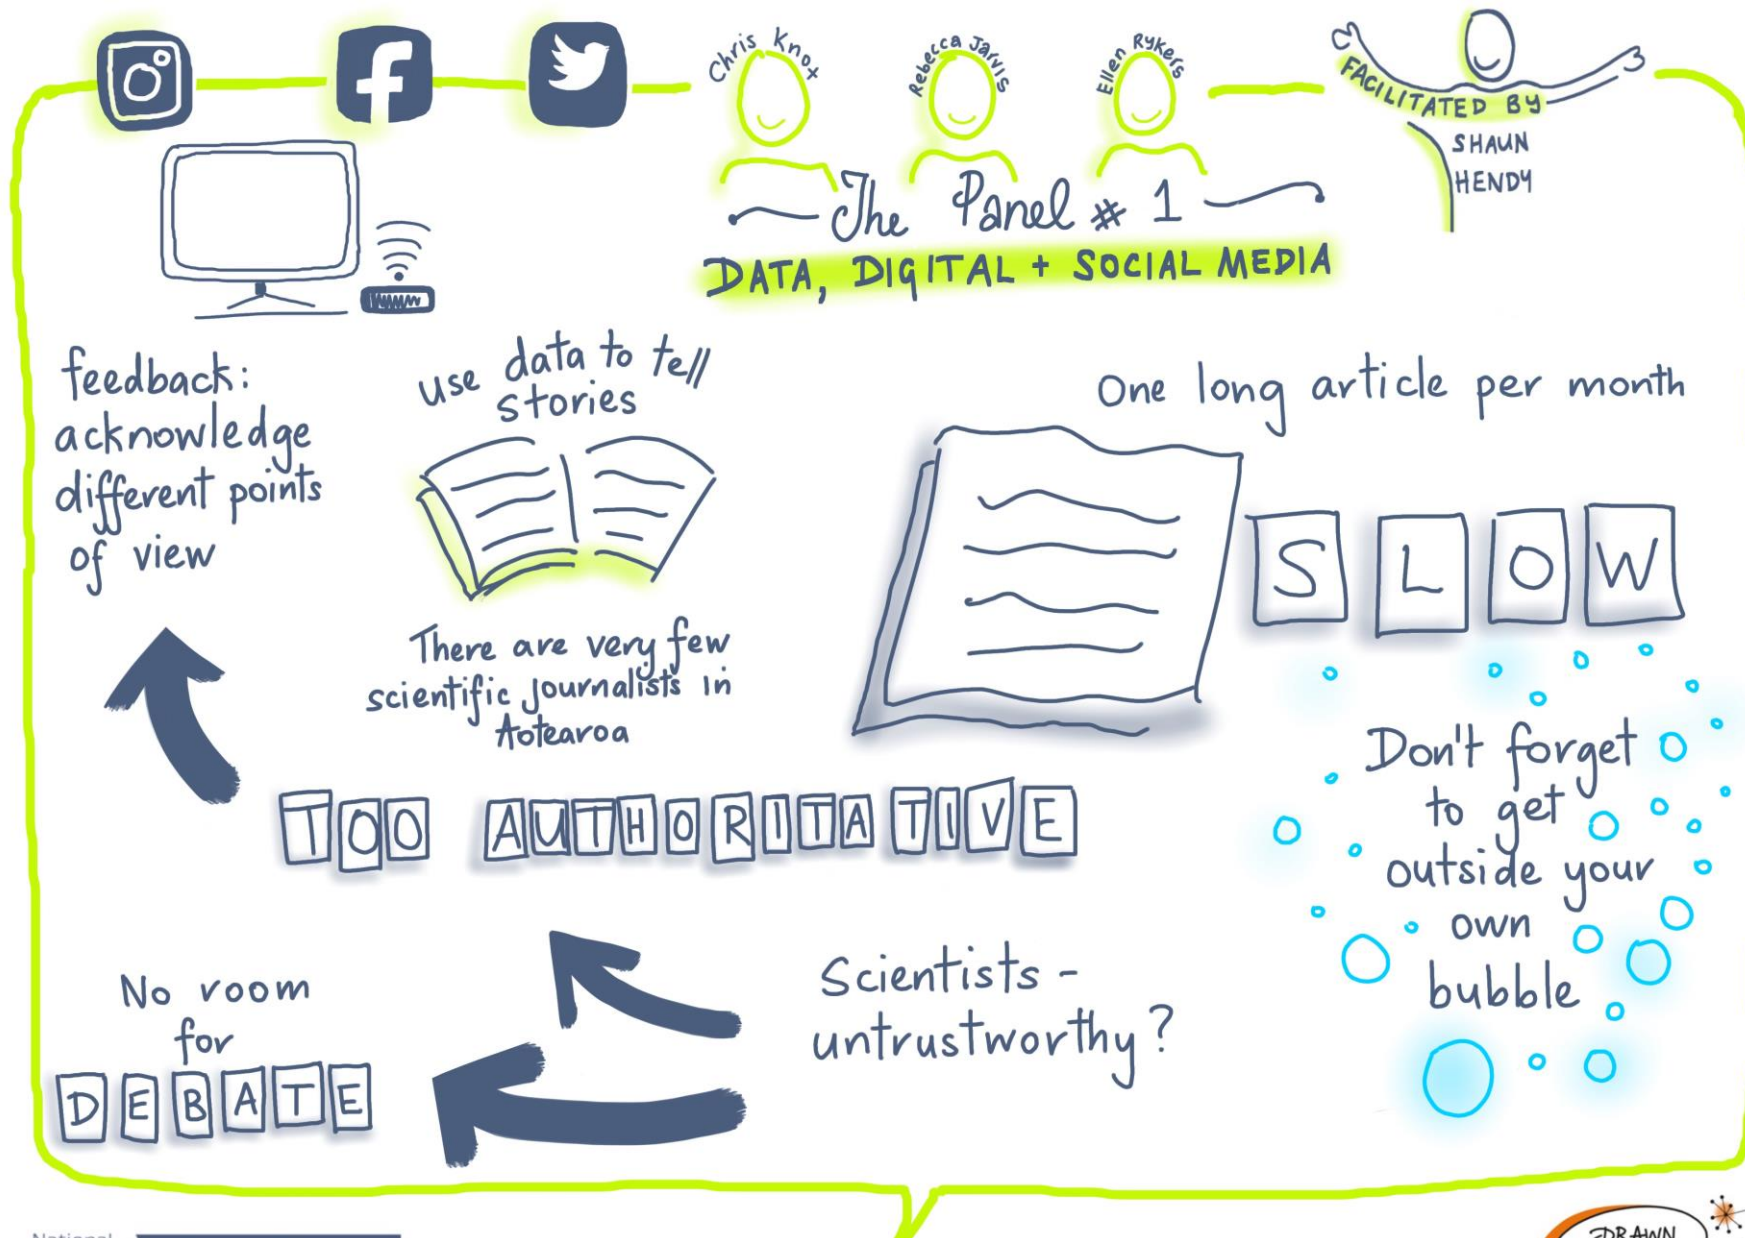 Chris Knox
Rebecca Jarvis
Ellen Rykers
FACILITATED BY
SHAUN
HENDY
The Panel # 1
DATA, DIGITAL + SOCIAL MEDIA
feedback:
acknowledge
different points
of view
use data to tell
stories
There are very few
scientific journalists in
Aotearoa
One long article per month
SLOW
Don't forget
to get
outside your
own
bubble
TOO AUTHORITATIVE
Scientists -
untrustworthy?
No room
for
DEBATE
National
DRAWN